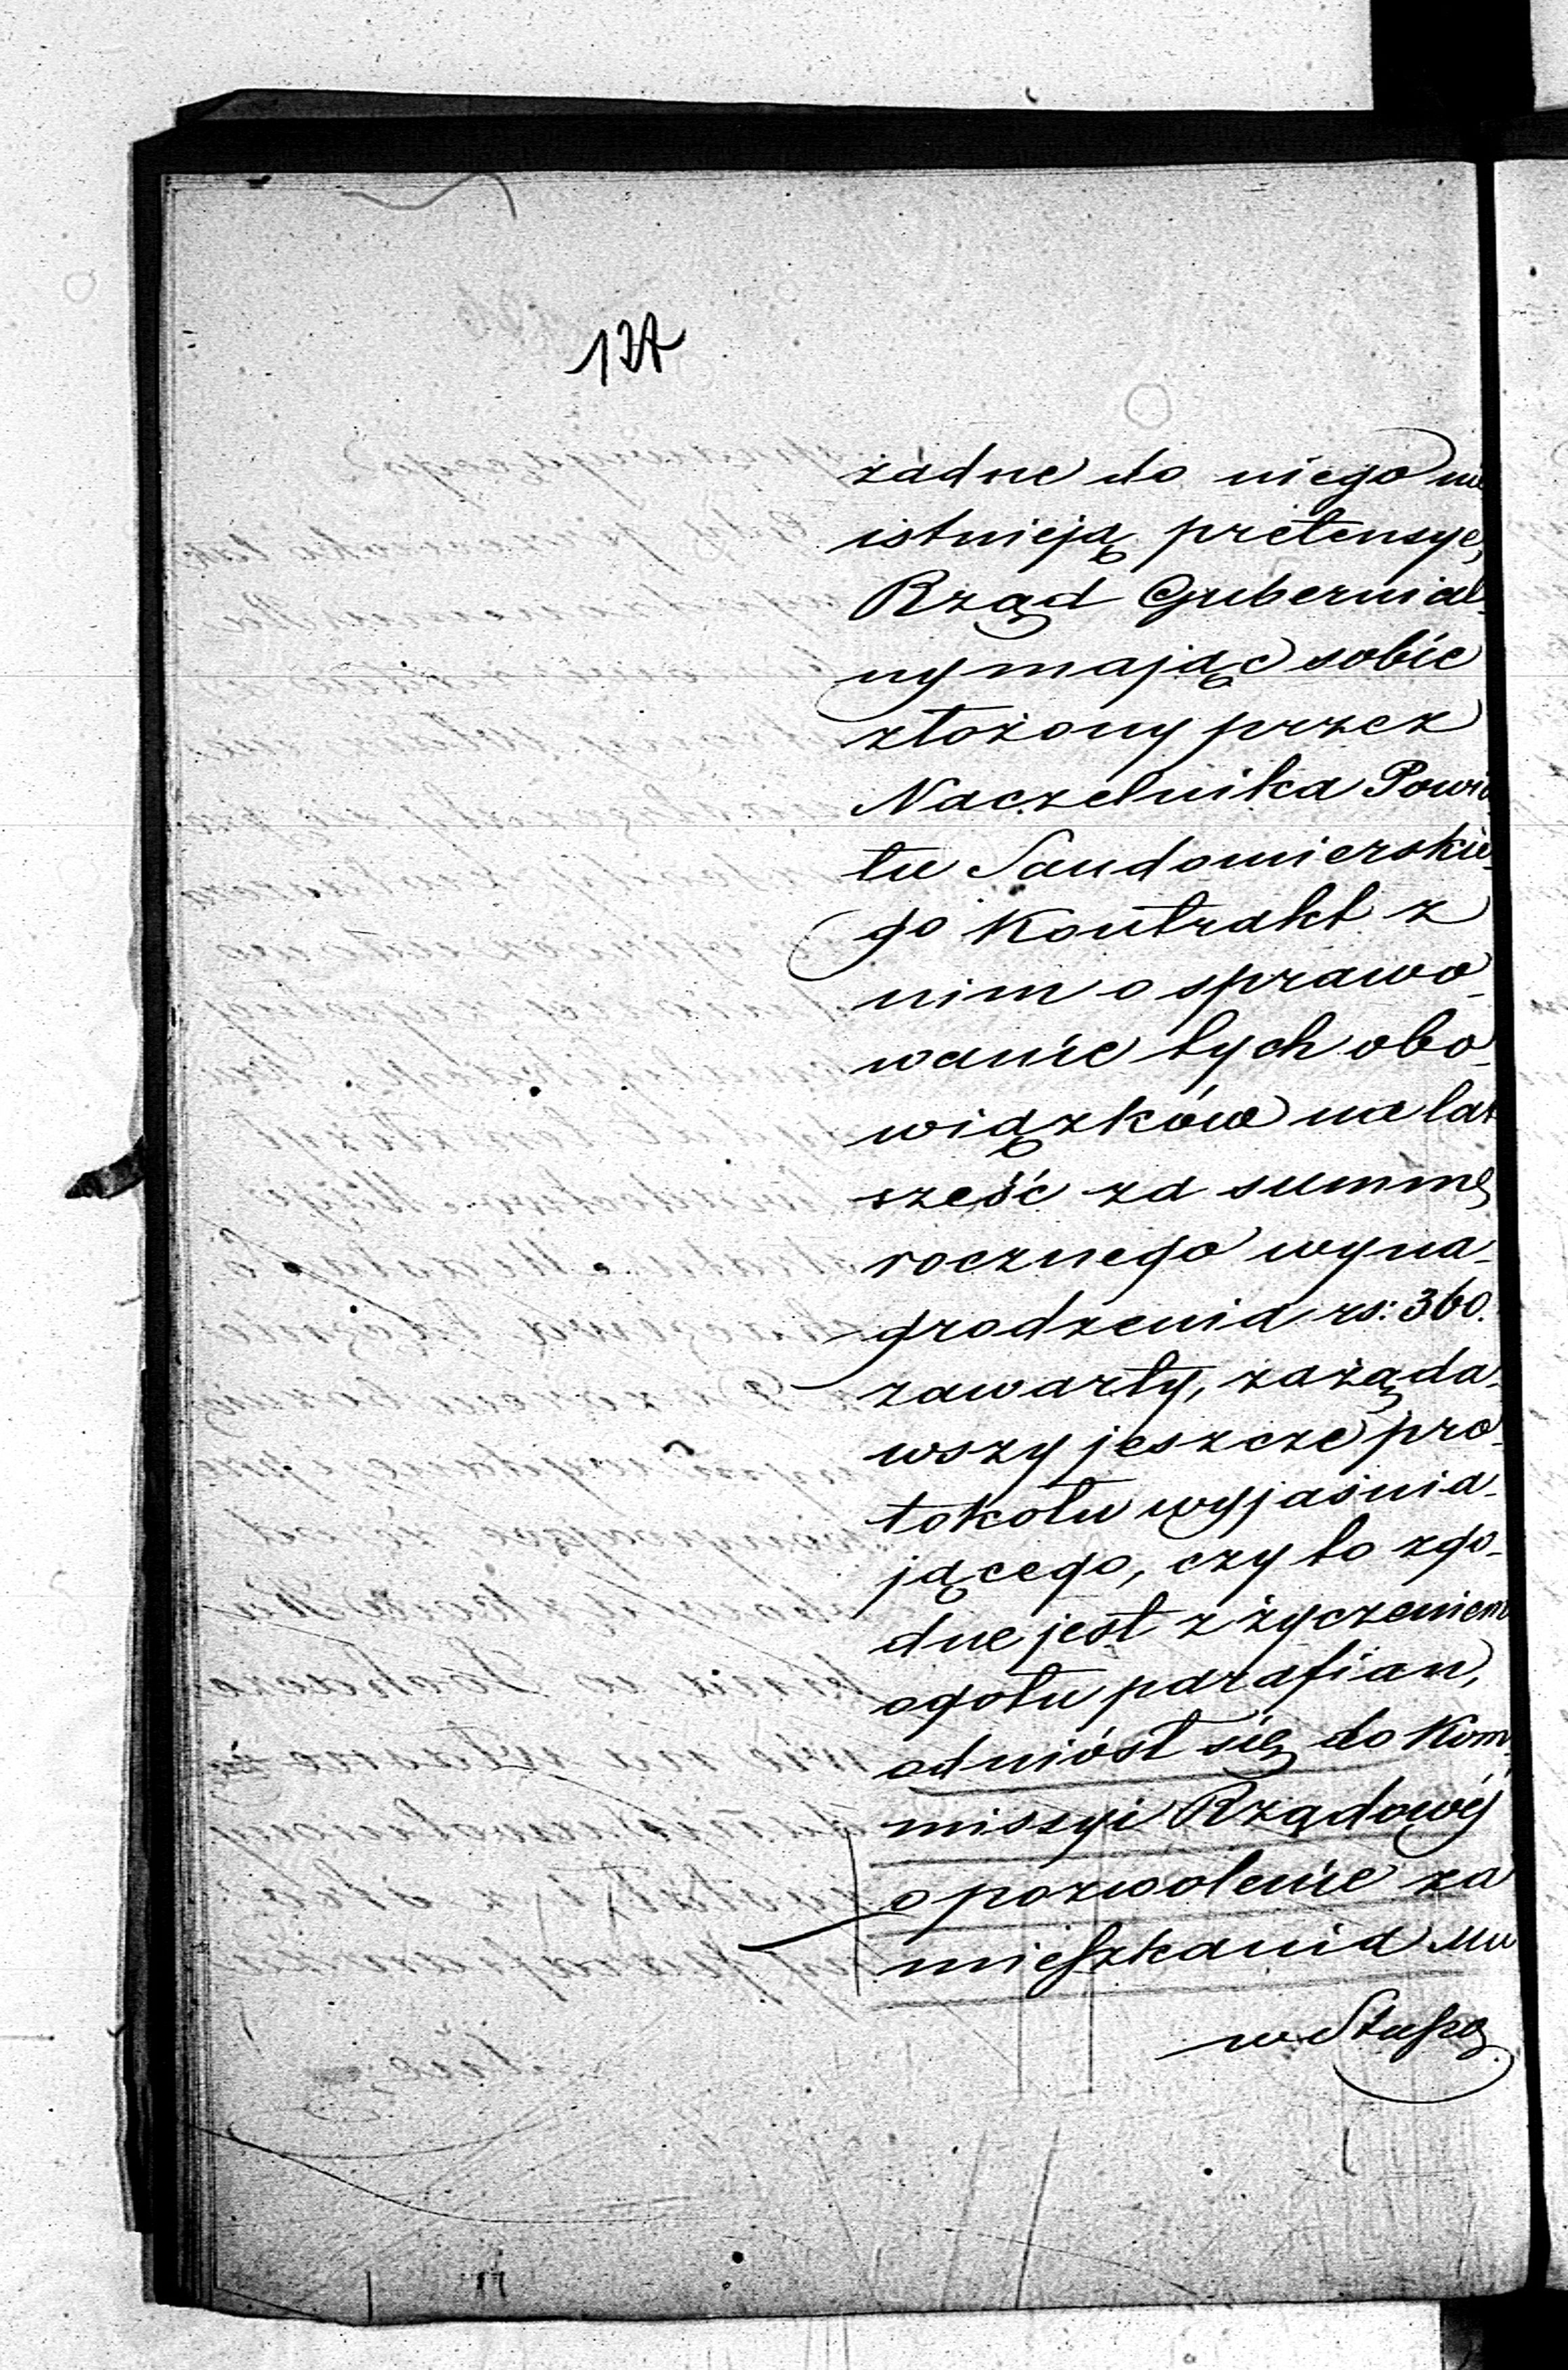 127
żadne do niego nie
istnieją pretensye,
Rząd Gubernial-
ny mając sobie
złożony przez
Naczelnika Powia
tu Sandomierskie-
go Kontrakt z
nim o sprawo-
wanie tych obo-
wiązków na lat
sześć za summę
rocznego wyna-
grodzenia rs: 360.
zawarty, zażąda-
wszy jeszcze pro-
tokołu wyjaśnia-
jącego, czy to zgo-
dne jest z życzeniem
ogółu parafian,
odniósł się do Kom-
missyi Rządowéj
o pozwolenie za
mieszkania mu
w Słupcy